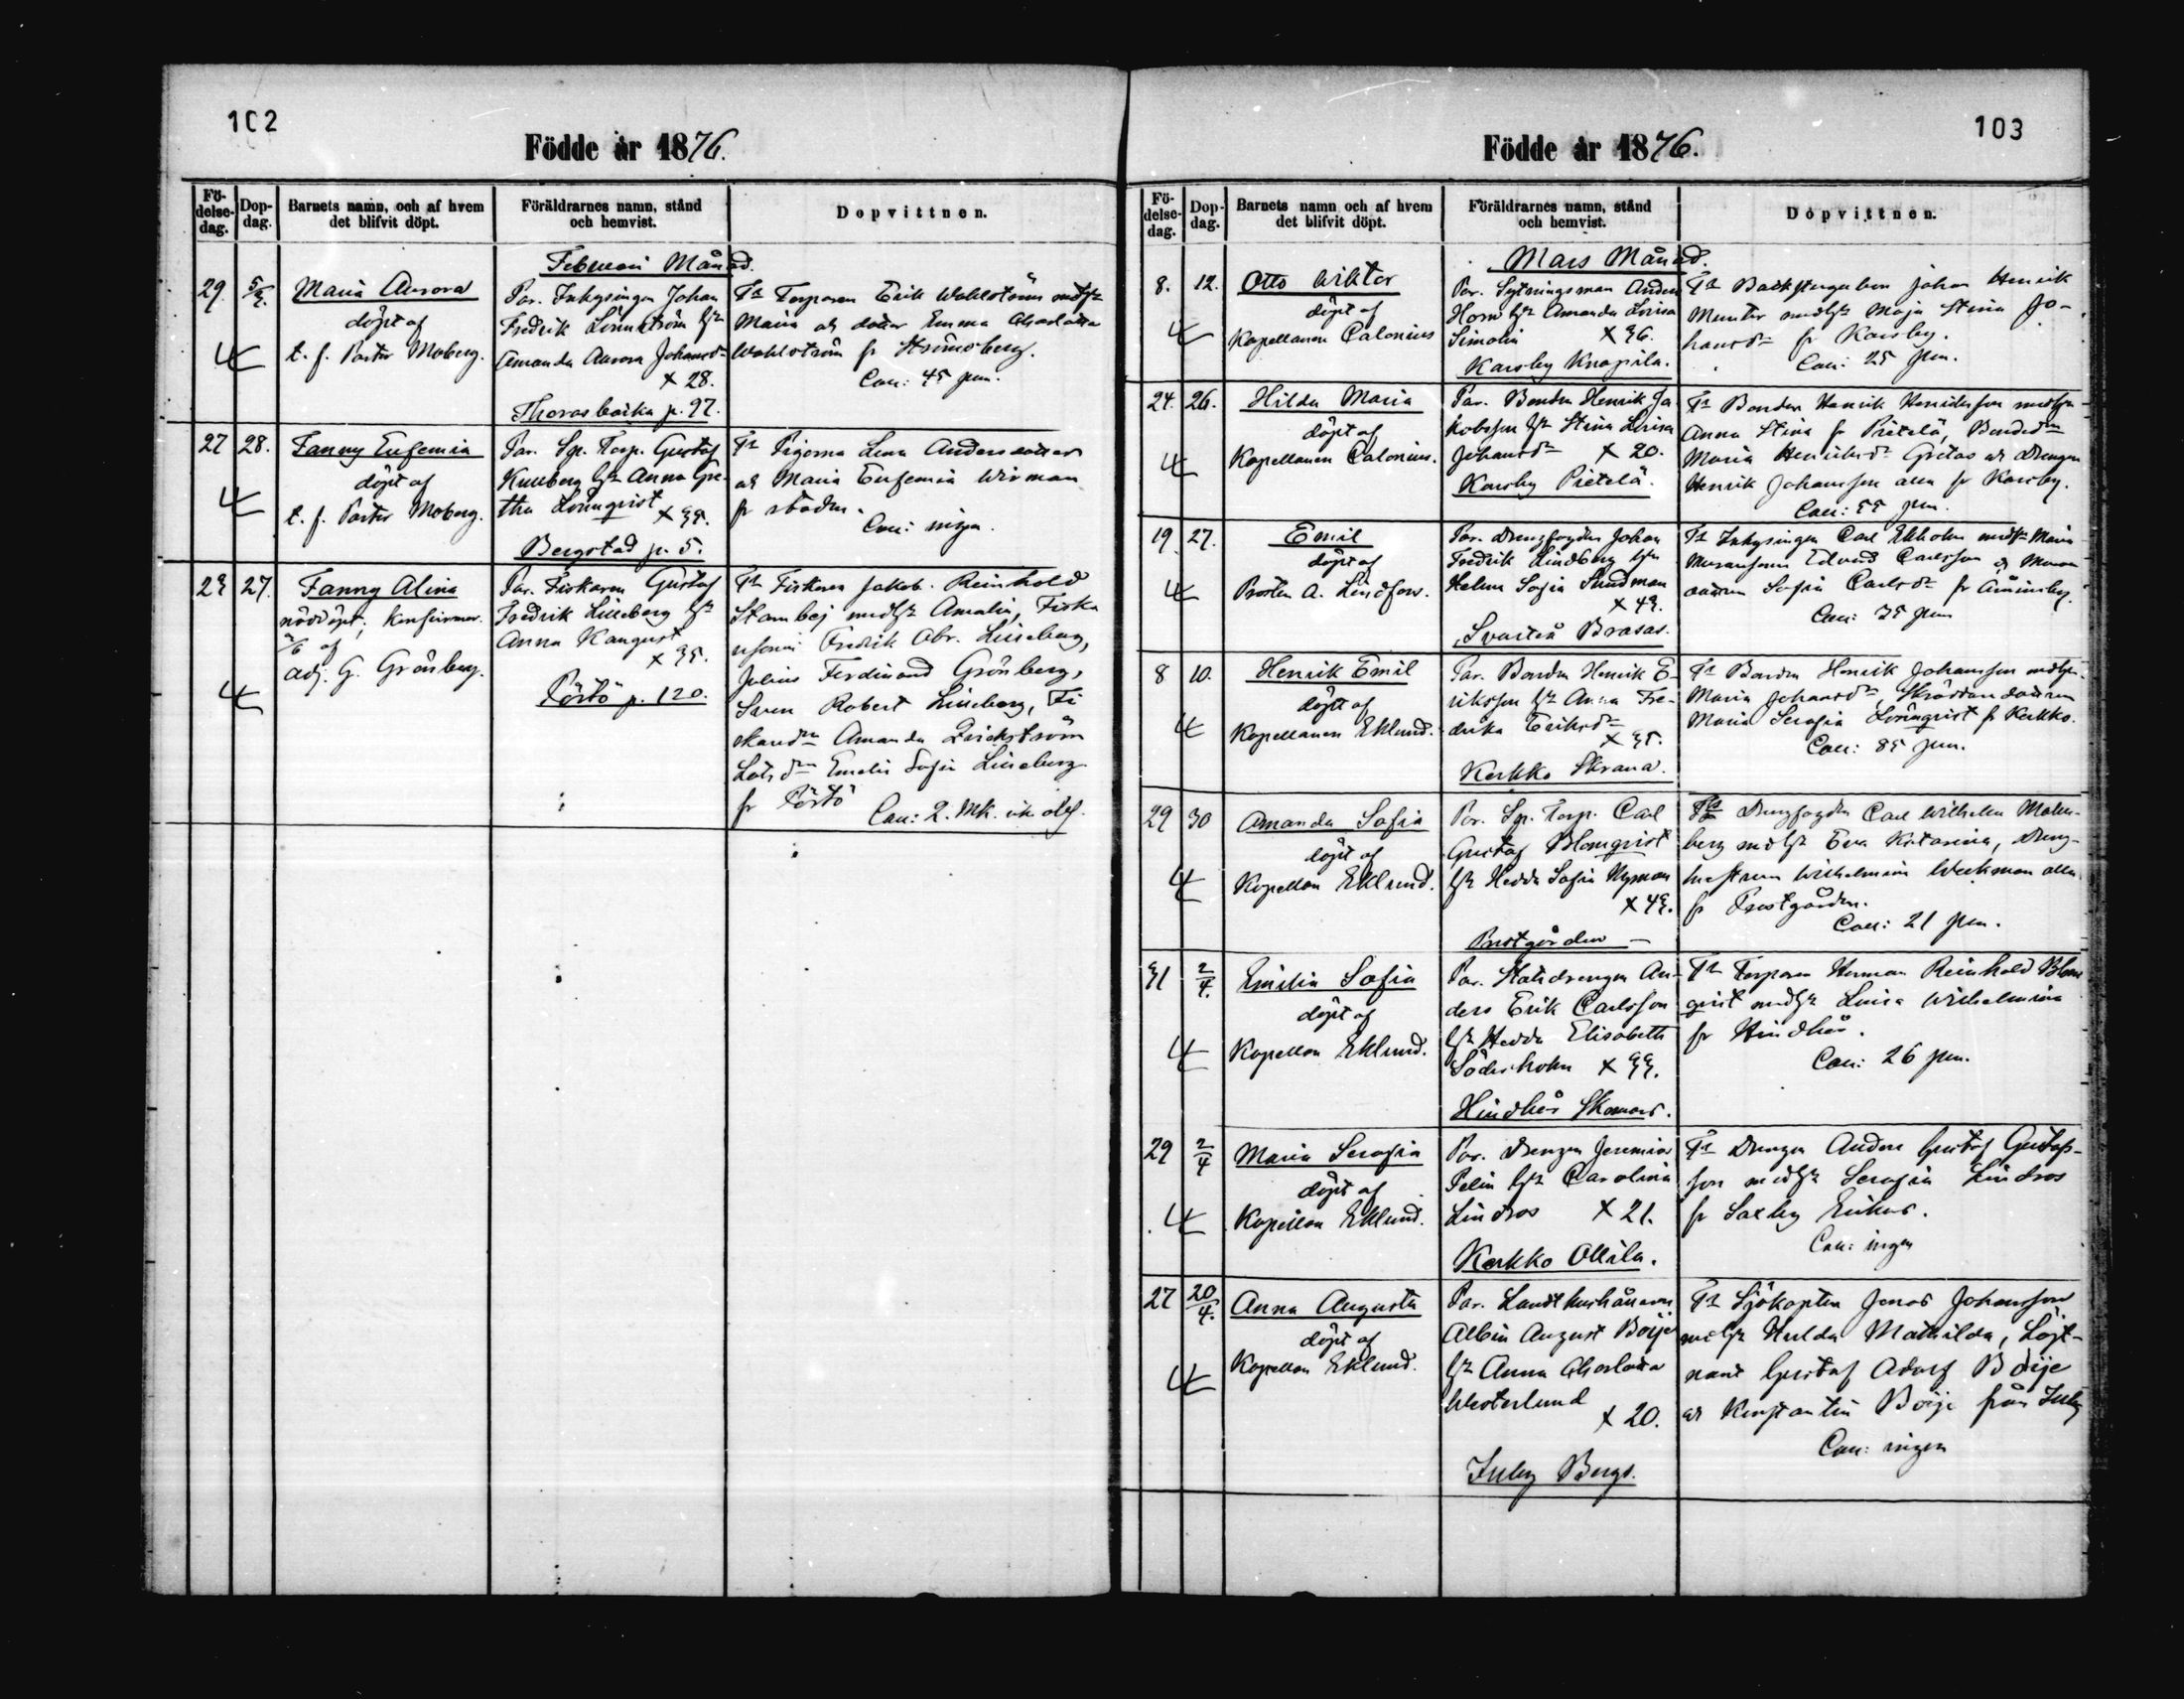 102
Födde år 1876.
Födelsedag.
Dopdag.
Barnets namn, och af hvem det blifvit döpt.
Föräldrarnes namn, stånd och hemvist.
Dopvittnen.
Februari Månad.
29 5/3. Maria Aurora
döpt af
t. f. Pastor Moberg.
Par. Inhysingen Johan
Fredrik Lönnström hst
Amanda Aurora Johansdr
x 28.
Thorasbacka p. 97.
Ts Torparen Erik Wahlström
Maria och dotter Emma Charlotta
Wahlström fr Strömsberg.
Coll: 45 pen.
27 28. Fanny Eufemia
döpt af
t. f. Pastor Moberg.
Par. Sgr. Torp. Gustaf
Kullberg hst Anna Gre-
tha Lönnqvist x 35.
Bergstad p. 5.
Ts Pigorna Lena Andersdotter
och Maria Eufemia Wirman
fr staden.
Coll: ingen.
23 27. Fanny Alina
nöddöpt, konfirmer.
af
adj. G. Grönberg.
Par. Fiskaren Gustaf
Fredrik Lilleberg hst
Anna Kangust
x 35.
Pörtö p. 120.
Ts Fiskaren Jakob Reinhold
Stambej medhst Amalia, Fiska
resonen Fredrik Abr. Lilleberg,
Julius Ferdinand Grönberg,
Sven Robert Lilleberg, Fi
skaredn Amanda
Lotsdn Emelie Sofia Lilleberg
fr Pörtö Coll: 2. Mk.
103
Födde år 1876.
Födelsedag.
Dopdag.
Barnets namn och af hvem det blifvit döpt.
Föräldrarnes namn, stånd och hemvist.
Dopvittnen.
Mars Månad.
8. 12. Otto Wiktor
döpt af
Kapellanen Calonius
Par. Sytningsman Anders
Horn hst Amanda Lovisa
Simolin x 36.
Karsby Knapila.
Ts Backstugubon Johan Henrik
Munter medhst Maja Stina Jo-
hansdr fr Karsby.
Coll: 25 pen.
24. 26. Hilda Maria
döpt af
Kapellanen Calonius.
Par. Bonden Henrik Ja
kobsson hst Stina Lovisa
Johansdr x 20.
Karsby Pietelä.
Ts Bonden Henrik Henriksson medhst
Anna Stina fr Pietelä, Bondedn
Maria Henriksdr Gretas och Drengen
Henrik Johansson alla fr Karsby.
Coll: 55 pen.
19. 27. Emil
döpt af
Prosten A. Lindfors.
Par. Drengfogden Johan
Fredrik Lindberg hst
Helena Sofia Sundman
x 43.
Svartså Brasas.
Ts Inhysingen Carl Ekholm medhst Maria
Edvard Carlsson
Sofia Carlsdr fr
Coll: 35 pen
8 10. Henrik Emil
döpt af
Kapellanen Eklund.
Par. Bonden Henrik E-
riksson hst Anna Fre-
drika Eriksdr
x 35.
Kerkko Skrana.
Ts Bonden Henrik Johansson medhst
Maria Johansdr, Skräddaredottern
Maria Serafia Lönnqvist fr Kerkko.
Coll: 85 pen.
29 30 Amanda Sofia
döpt af
Kapellan Eklund.
Par. Sgr. Torp. Carl
Gustaf Blomqvist
hst Hedda Sofia Nyman
x 43.
Prostgården —
Ts Drengfogden Carl Wilhelm Malm-
berg medhst Eva Katarina, Dreng-
hustrun Wilhelmina Weckman alla
fr Prostgården.
Coll: 21 pen.
31 2/4. Emilia Sofia
döpt af
Kapellan Eklund.
Par. Statsdrengen An-
ders Erik Carlsson
hst Hedda Elisabeth
Söderholm x 33.
Hindhår Skomars.
Ts Torparen Herman Reinhold Blom
qvist medhst Lovisa Wilhelmina
fr Hindhår.
Coll: 26 pen.
29 2/4 Maria Serafia
döpt af
Kapellan Eklund.
Par. Drengen Jeremias
Pelin hst Carolina
Lindros x 21.
Kerkko Ollila.
Ts Drengen Anders Gustaf Gustafs-
son medhst Serafia Lindros
fr Saxby Erikas.
Coll: ingen
27 20/4. Anna Augusta
döpt af
Kapellan Eklund.
Par. Landthushållaren
Albin August Boije
hst Anna Charlotta
Westerlund
x 20.
Illby Bergs.
Ts Sjökapten Jonas Johansson
medhst Hulda Mathilda, Löjt-
nant Gustaf Adolf Boije
och Konstantin Boije från Illby
Coll: ingen